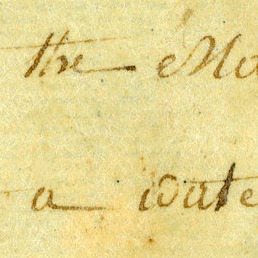 the Ma
a wate